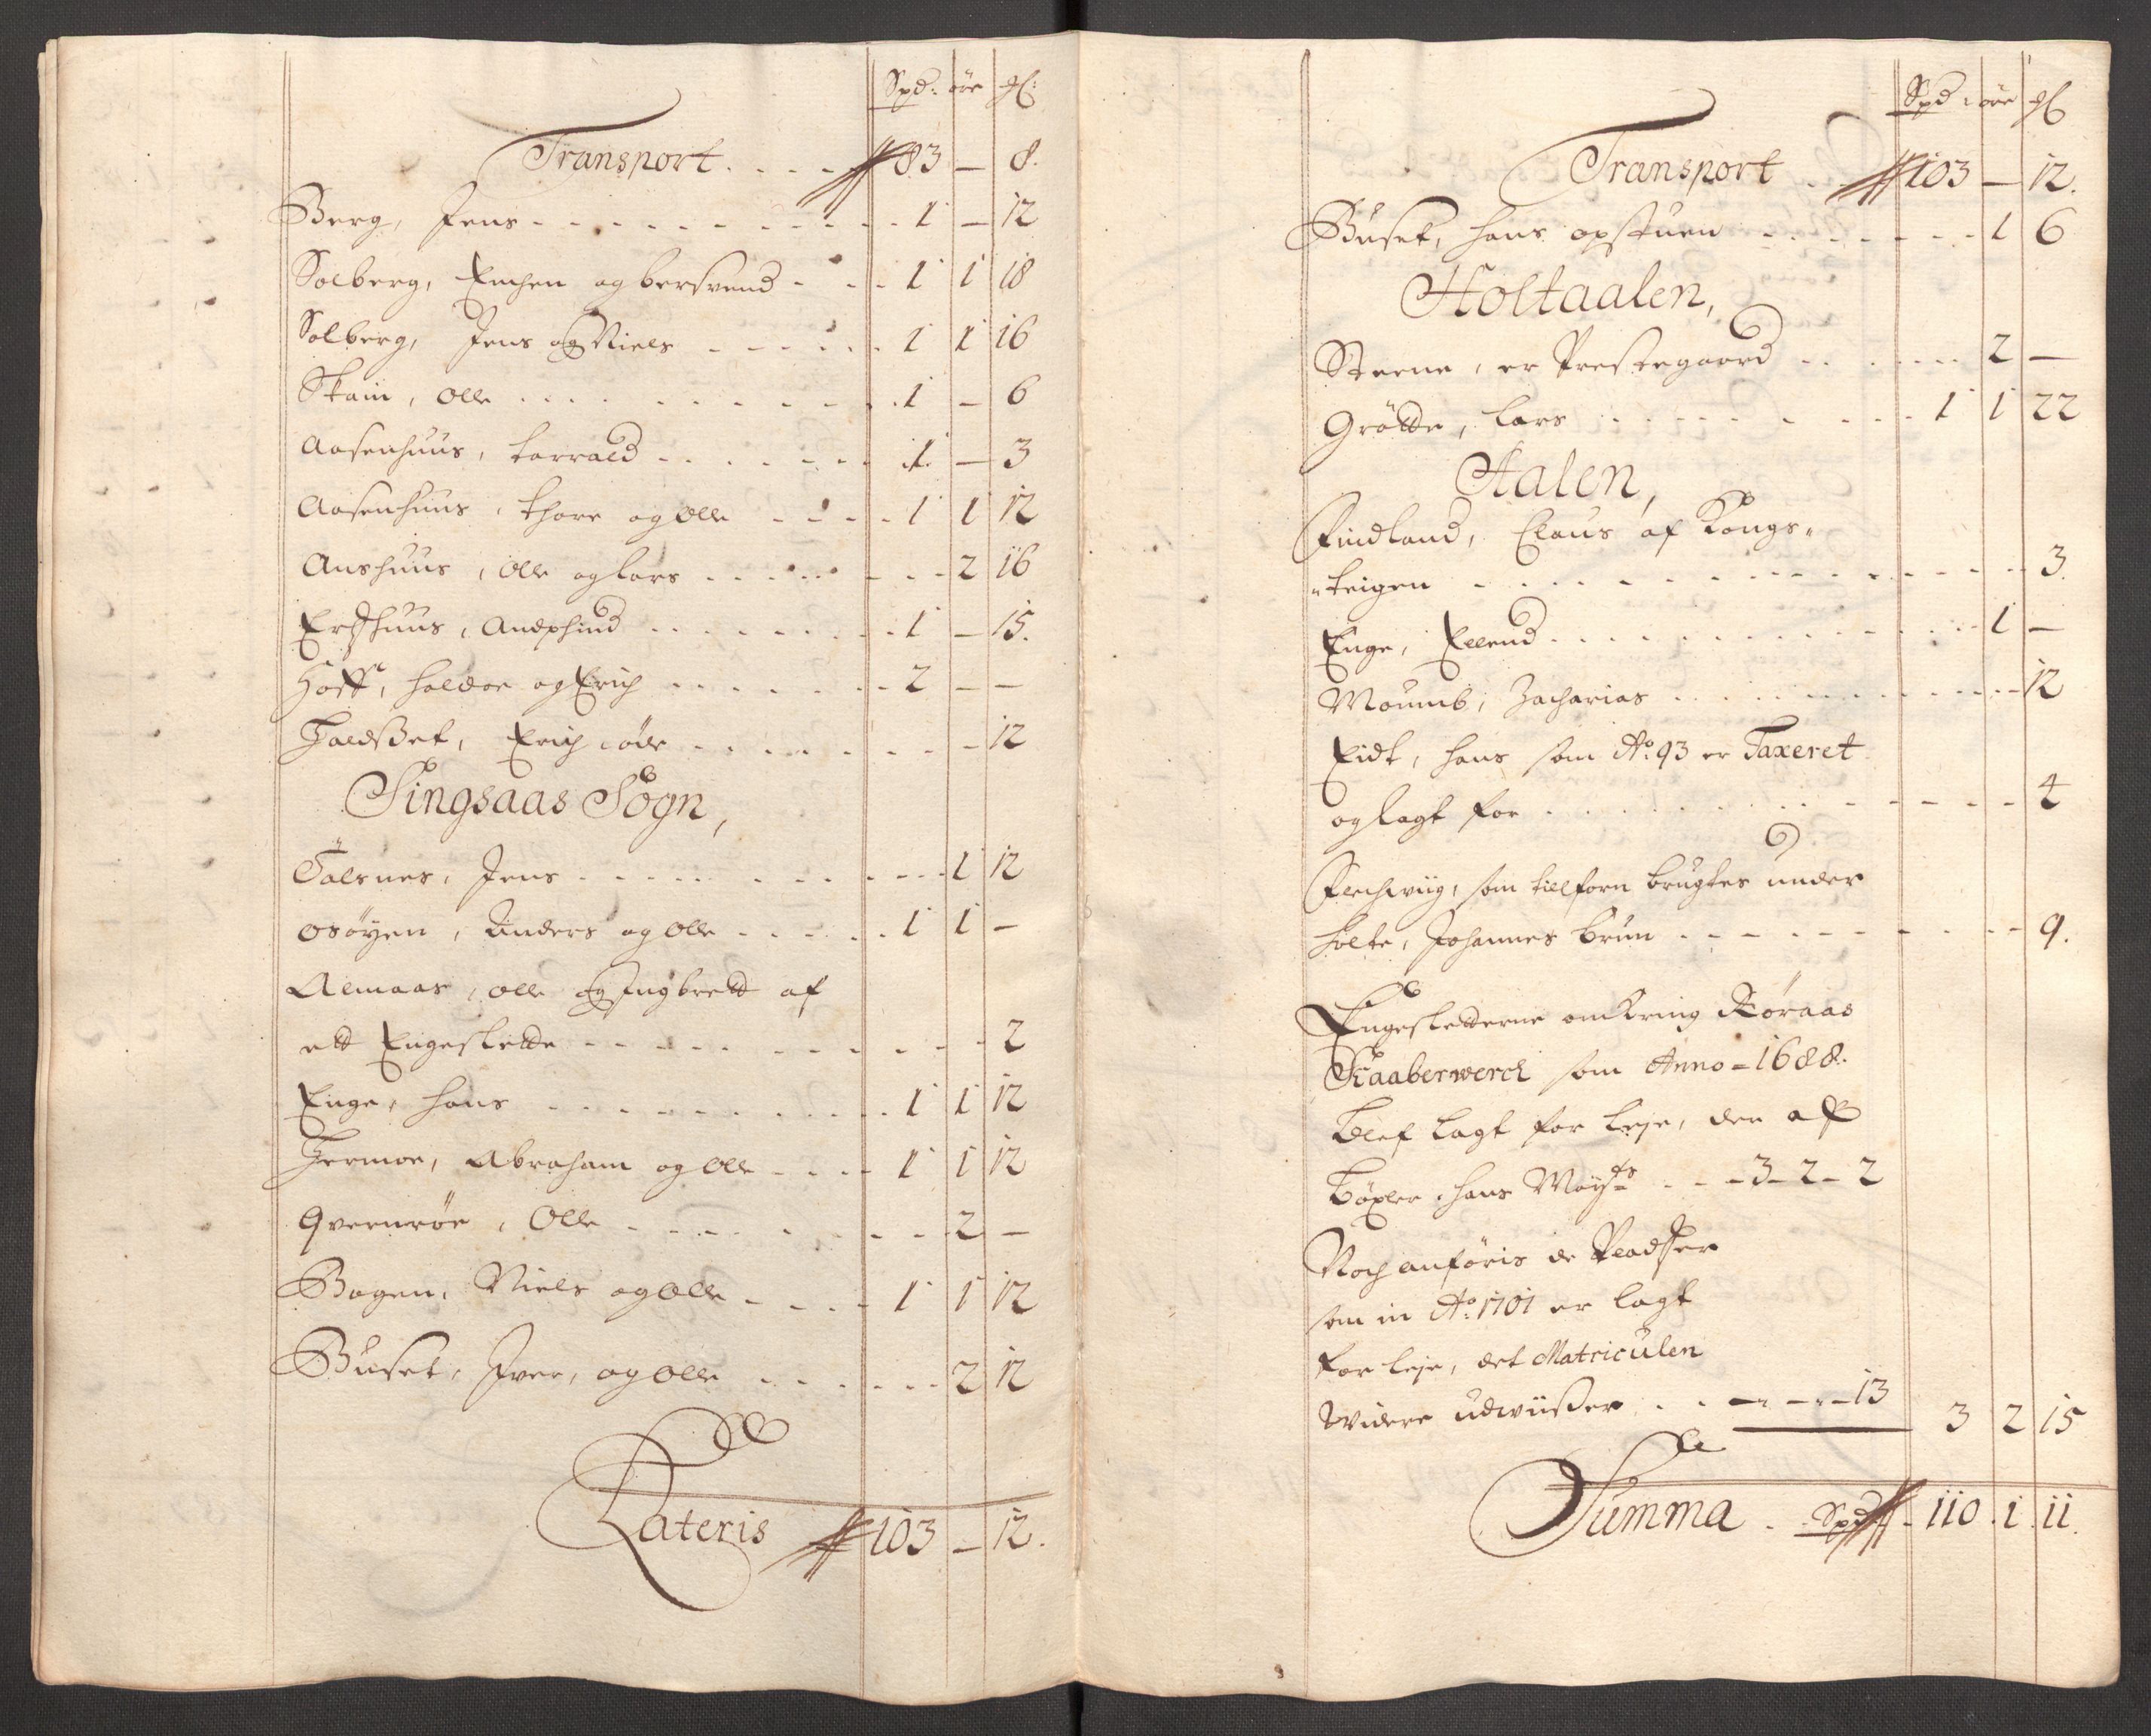 Spd: öre ₰:
Transport . . . . 83 — 8.
Berg, Jens . . . . 1 — 12
Solberg, Enchen og bersvend . . . 1 1 18
Solberg, Jens og Niels . . . . 1 1 16
Skain, Olle . . . . 1 — 6
Aasenhuus, Tarrald . . . . 1 — 3
Aasenhuus, Thore og Olle . . . . 1 1 12
Aushuus, Olle og Lars . . . . 2 16
Erdshuus, Andphind . . . . 1 — 15.
Hoff, Haldor og Erich . . . . 2 — —
Haldset, Erich, öde . . . . 12
Singsaas Sogn,
Talsnes, Jens . . . . 1 12
Osöyen, Anders og Olle . . . . 1 1 —
Almaas, Olle og Ingbrett af
ett Engeslette . . . . 2
Enge, Hans . . . . 1 1 12
Hermoe, Abraham og Olle . . . . 1 1 12
Qvernröe, Olle . . . . 2 —
Bogen, Niels og Olle . . . . 1 1 12
Buset, Iver, og Olle . . . . 2 12
Lateris 103 — 12.
Spd: öre ₰
Transport . 103 — 12.
Buset, Hans opstuen . . . . 1 6
Holtaalen,
Steene, er Prestegaard . . . . 2 —
Grötte, Lars . . . . 1 1 22
Aalen,
Findland, Claus af Kongs-
-teigen . . . . 3.
Enge, Ellend . . . . 1 —
Moumb, Zacharias . . . . 12
Eidt, Hans som Ao: 93 er Taxeret
og lagt for . . . . 4
Flechwiig, som tillforn brugtes under
Holte, Johannes Brun . . . . 9.
Engesletterne omkring Röraas
Kaaberwerck som Anno = 1688.
blef lagt for leje, der aff
böxler Hans Mayts . . . 3 - 2 - 2
Noch anföris de Pladser
som in Ao: 1701 er lagt
for leje, det Matriculen
widere udwiisser . . — „ — „ — 13 3 2 15
Summa . Spd 110 . 1 . 11.